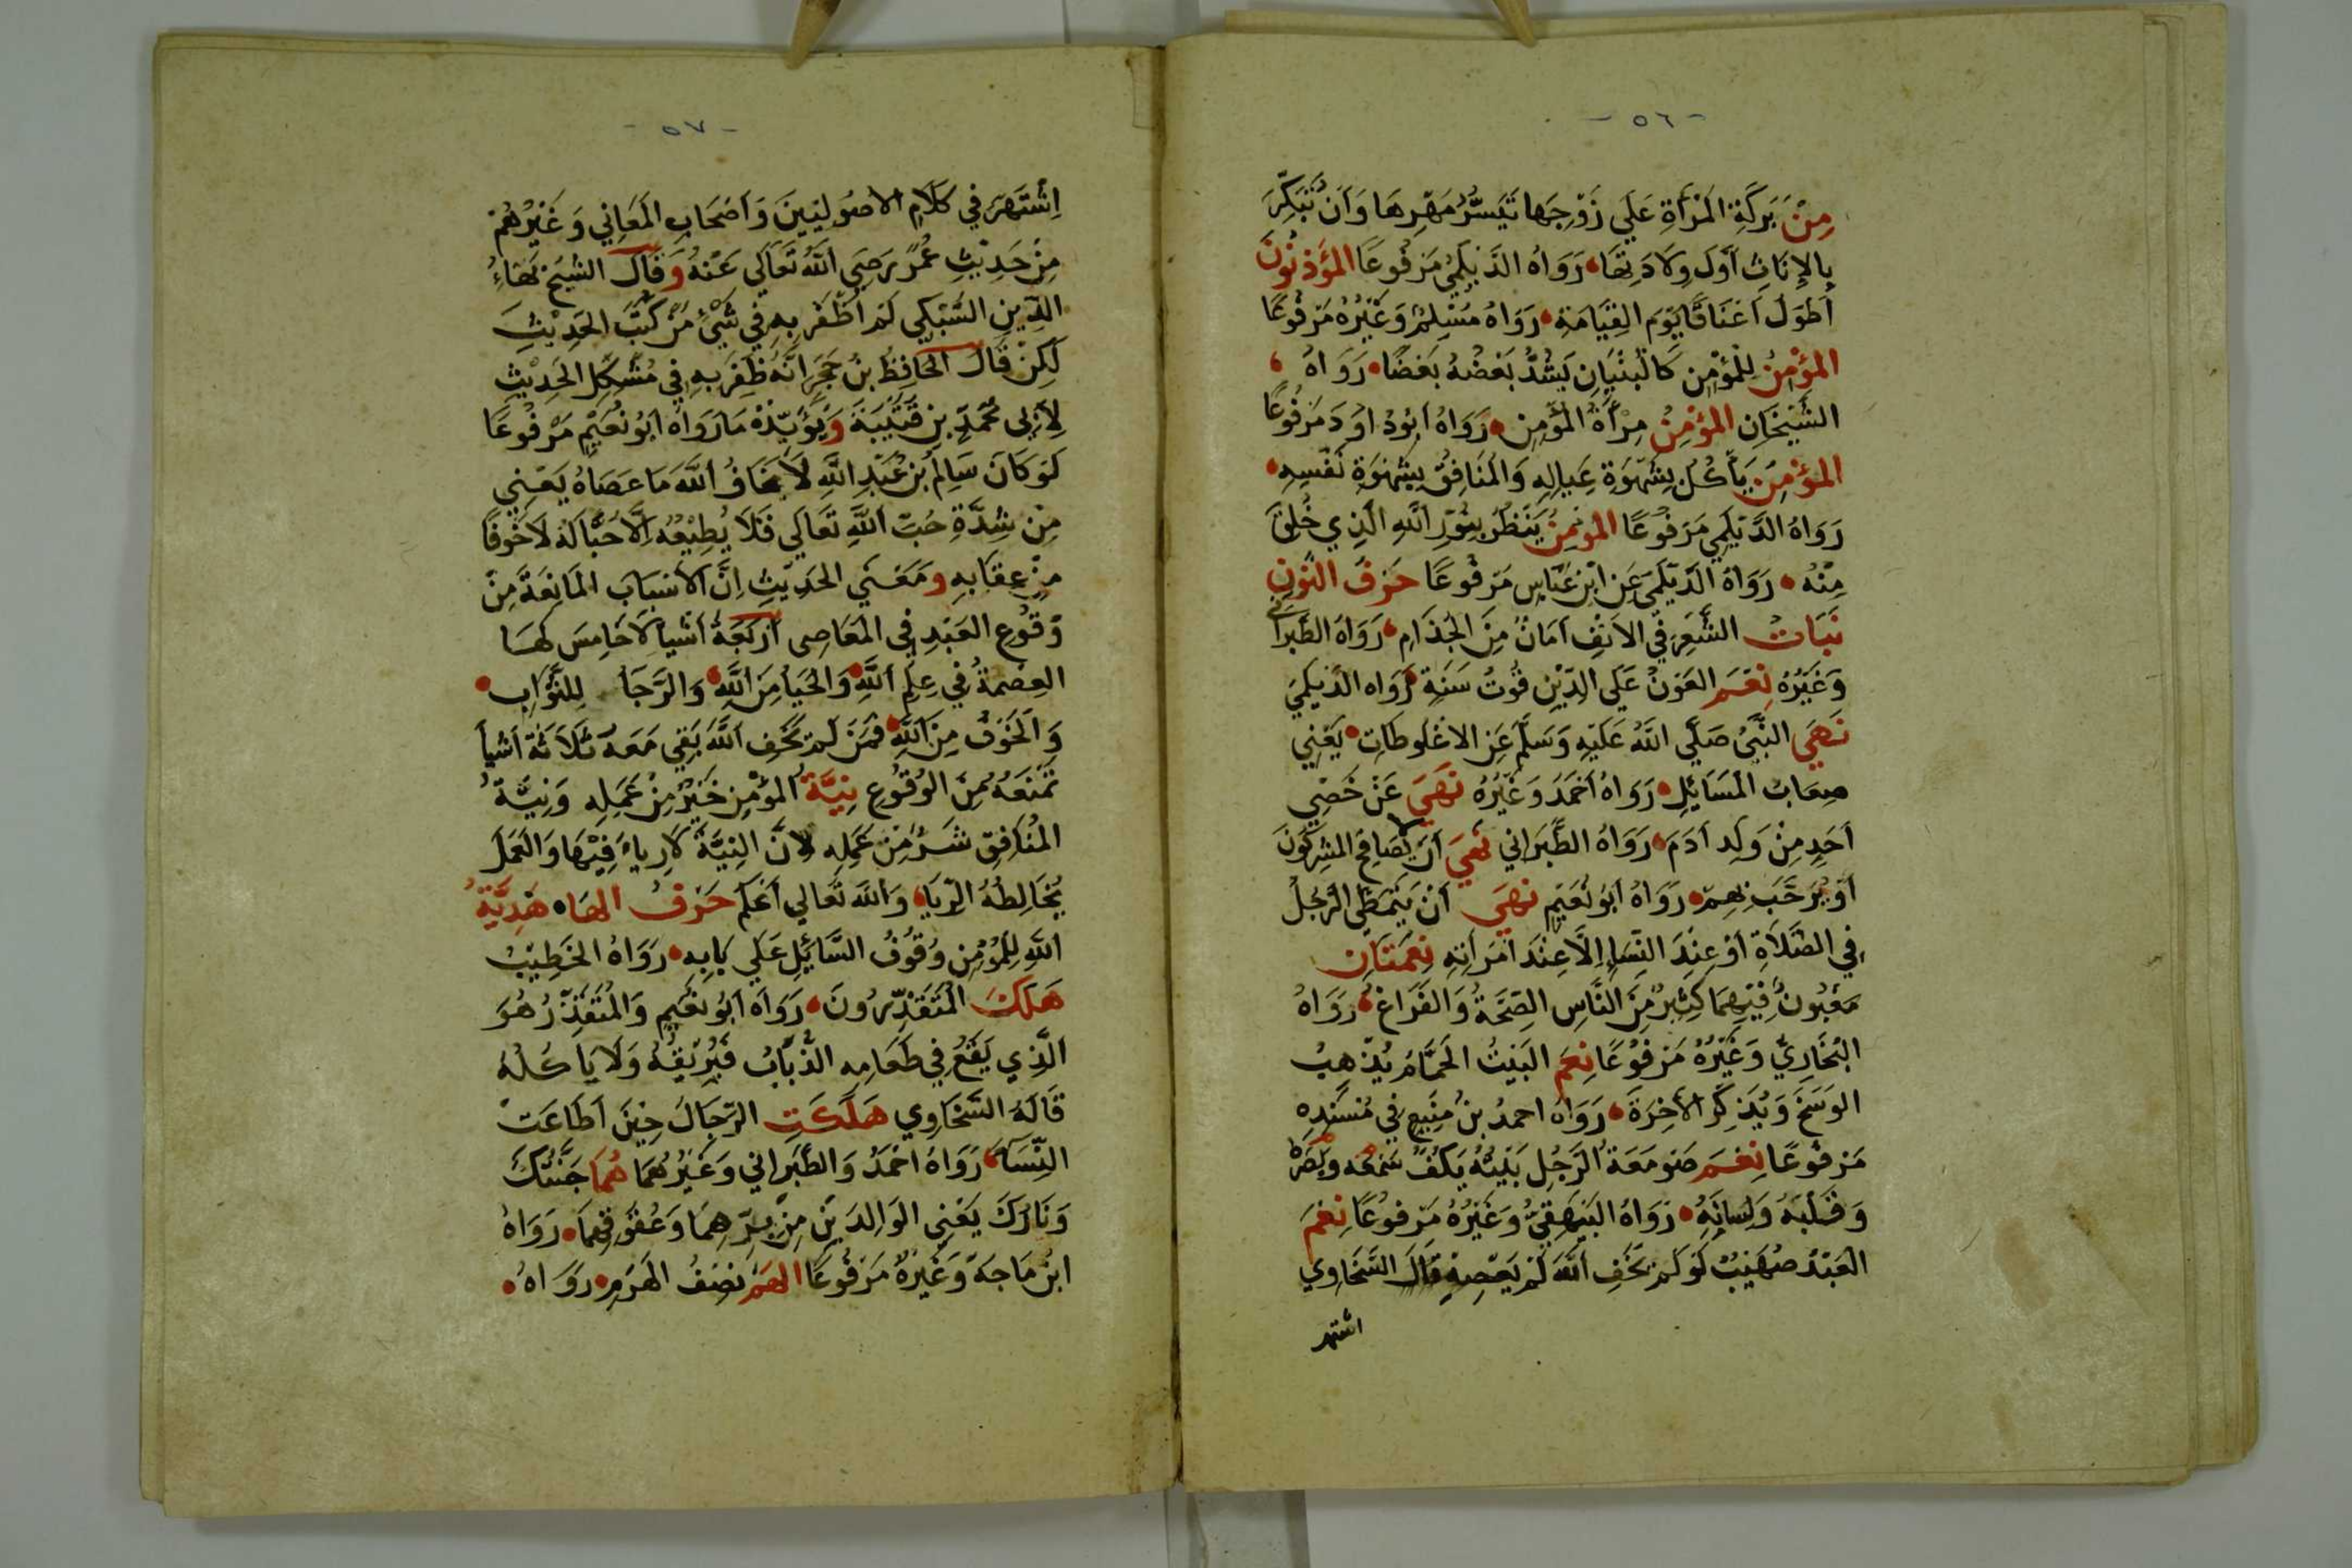 - ٥٦ -
مِنْ بَرَكَةِ المَرْأَةِ عَلَي زَوْجِهَا تَيَسُّرُ مَهْرِهَا وَأَنْ تُبَكِّرَ
بِالإِنَاثِ أَوَّلَ وِلَادَتِهَا، رَوَاهُ الدَّيْلَمِيُّ مَرْفُوعًا المُؤَذِنُونَ
أَطْوَلُ أَعْنَاقًا يَوْمَ القِيَامَةِ، رَوَاهُ مُسْلِمٌ وَغَيْرُهُ مَرْفُوعًا
المُؤْمِنُ لِلْمُؤْمِنِ كَالْبُنْيَانِ يَشُدُّ بَعْضُهُ بَعْضًا، رَوَاهُ
الشَّيْخَانِ المُؤْمِنُ مِرْأَةُ المُؤْمِنِ، رَوَاهُ أَبُودَاوُدَ مَرْفُوعًا
المُؤْمِنُ يَأْكُلُ بِشَهْوَةِ عِيَالِهِ وَالمُنَافِقُ بِشَهْوَةِ نَفْسِهِ،
رَوَاهُ الدَّيْلَمِي مَرْفُوعًا المُومِنُ يَنْظُرُ بِنُورِ اللَّهِ الَّذِي خُلِقَ
مِنْهُ، رَوَاهُ الدَّيْلَمِي عَنِ ابْنِ عَبَّاسٍ مَرْفُوعًا حَرْفُ النُّونِ
نَبَاتُ الشَّعَرِ فِي الأَنْفِ أَمَانٌ مِنَ الجُذَامِ، رَوَاهُ الطَّبَرَانِي
وَغَيْرُهُ نِعْمَ العَوْنُ عَلَي الدِّيْنِ قُوتُ سَنَةٍ، رَوَاه الدَّيْلَمِيّ
نَهَي النَّبِيُّ صَلَّي اللَّهُ عَلَيْهِ وَسَلَّمَ عَنِ الاغْلُوطَاتِ، يَعْنِي
صِعَابَ المَسَائِلِ، رَوَاهُ أَحْمَدُ وَغَيْرُهُ نَهَيَ عَنْ خَصِي
أَحَدٍ مِنْ وَلَدِ آدَمَ، رَوَاهُ الطَّبَرَانِي نَهَيَ أَنْ يُصَافَحَ المُشْرِكُونَ
أَوْ يُرَحَّبَ بِهِمْ، رَوَاهُ أَبُو نُعَيْمٍ نَهَيَ أَنْ يَتَمَطَّى الرَّجُلُ
فِي الصَّلَاةِ أَوْ عِنْدَ النِّسَاءِ إِلَّا عِنْدَ امْرَأَتِهِ نِعْمَتَانِ
مَغْبُونٌ فِيْهِمَا كَثِيْرٌ مِنَ النَّاسِ الصِّحَّةُ وَالفَرَاغُ، رَوَاهُ
البُخَارِيُّ وَغَيْرُهُ مَرْفُوعًا نِعْمَ البَيْتُ الحَمَّامُ يُذْهِبُ
الوَسَخَ وَيُذَكِّرُ الآخِرَةَ، رَوَاهُ احمدُ بنُ مَنِيعٍ فِي مُسْنَدِهِ
مَرْفُوعًا نِعْمَ صَوْمَعَةُ الرَّجُلِ بَيْتُهُ يَكُفُّ سَمْعَهُ وَبَصَرَهُ
وَقَلْبَهُ وَلِسَانَهُ، رَوَاهُ البَيْهَقِيُّ وَغَيْرُهُ مَرْفُوعًا نِعْمَ
العَبْدُ صُهَيْبٌ لَوْ لَمْ يَخَفِ اللَّهَ لَمْ يَعْصِهِ قَالَ السَّخَاوِي
اشتهر
- ٥٧ -
اِشْتَهَرَ فِي كَلَامِ الأُصُولِيِّينَ وَأَصْحَابِ المَعَانِي وَغَيْرُهُمْ
مِنْ حَدِيْثِ عُمَرَ رَضِيَ اللَّهُ تَعَالَي عَنْهُ وَقَالَ الشَّيْخُ بَهَاءُ
الدِّينِ السُّبْكِي لَمْ أَظْفَرْ بِهِ فِي شَيْءٍ مِنْ كُتُبِ الحَدِيْثِ
لَكِنْ قَالَ الحَافِظُ بنُ حَجَرٍ أَنَّهُ ظَفِرَ بِهِ فِي مُشْكِلِ الحَدِيْثِ
لأَبِي مُحَمَّدٍ بنِ قُتَيْبَةَ وَيُؤَيِّدُهُ مَا رَوَاهُ أَبُو نُعَيْمٍ مَرْفُوعًا
لَوْ كَانَ سَالِمُ بنُ عَبْدِ اللَّهِ لَا يَخَافُ اللَّهَ مَا عَصَاهُ يَعْنِي
مِنْ شِدَّةِ حُبِّ اللَّهِ تَعَالَي فَلَا يُطِيْعُهُ إِلَّا حُبًّا لَهُ لَا خَوْفًا
مِنْ عِقَابِهِ وَمَعْنَي الحَدِيْثِ إِنَّ الأَسْبَابَ المَانِعَةَ مِنْ
وُقُوعِ العَبْدِ فِي المَعَاصِى أَرْبَعَةُ أَشْيَا لَا خَامِسَ لَهَا
العِصْمَةُ فِي عِلْمِ اللَّهِ، وَالحَيَا مِنَ اللَّهِ، وَالرَّجَا لِلثَّوَابِ،
وَالخَوْفُ مِنَ اللَّهِ، فَمَنْ لَمْ يَخَفِ اللَّهَ بَقِي مَعَهُ ثَلَاثَةُ أَشْيَا
تَمْنَعُهُ مِنَ الوُقُوعِ نِيَّةُ المُؤْمِنِ خَيْرٌ مِنْ عَمَلِهِ وَنِيَّةُ
المُنَافِقِ شَرٌّ مِنْ عَمَلِهِ لِأَنَّ النِيَّةَ لَا رِيَاءَ فِيْهَا وَالعَمَلَ
يُخَالِطُهُ الرِّيَا، وَاللَّهُ تَعَالَي أَعْلَم حَرْفُ الهَاءِ هَدِيَّةُ
اللَّهِ لِلْمُؤْمِنِ وُقُوفُ السَّائِلِ عَلَي بَابِهِ، رَوَاهُ الخَطِيْبُ
هَلَكَ المُتَقَذِّرُونَ، رَوَاهُ أَبُو نُعَيْمٍ وَالمُتَقَذِّرُ هُوَ
الَّذِي يَقَعُ فِي طَعَامِهِ الذُّبَابُ فَيُرِيْقُهُ وَلَا يَأكُلُهُ
قَالَهُ السَّخَاوِي هَلَكَتِ الرِّجَالُ حِيْنَ أَطَاعَتْ
النِّسَا، رَوَاهُ أَحْمَدُ وَالطَّبَرَانِي وَغَيْرُهُمَا هُمَا جَنَّتُكَ
وَنَارُكَ يَعْنِي الوَالِدَيْنِ مِنْ بِرِّهِمَا وَعُقُوقِهِمَا، رَوَاهُ
ابْنُ مَاجَهْ وَغَيْرُهُ مَرْفُوعًا الهَمُّ نِصْفُ الهَرَمِ، رَوَاهُ